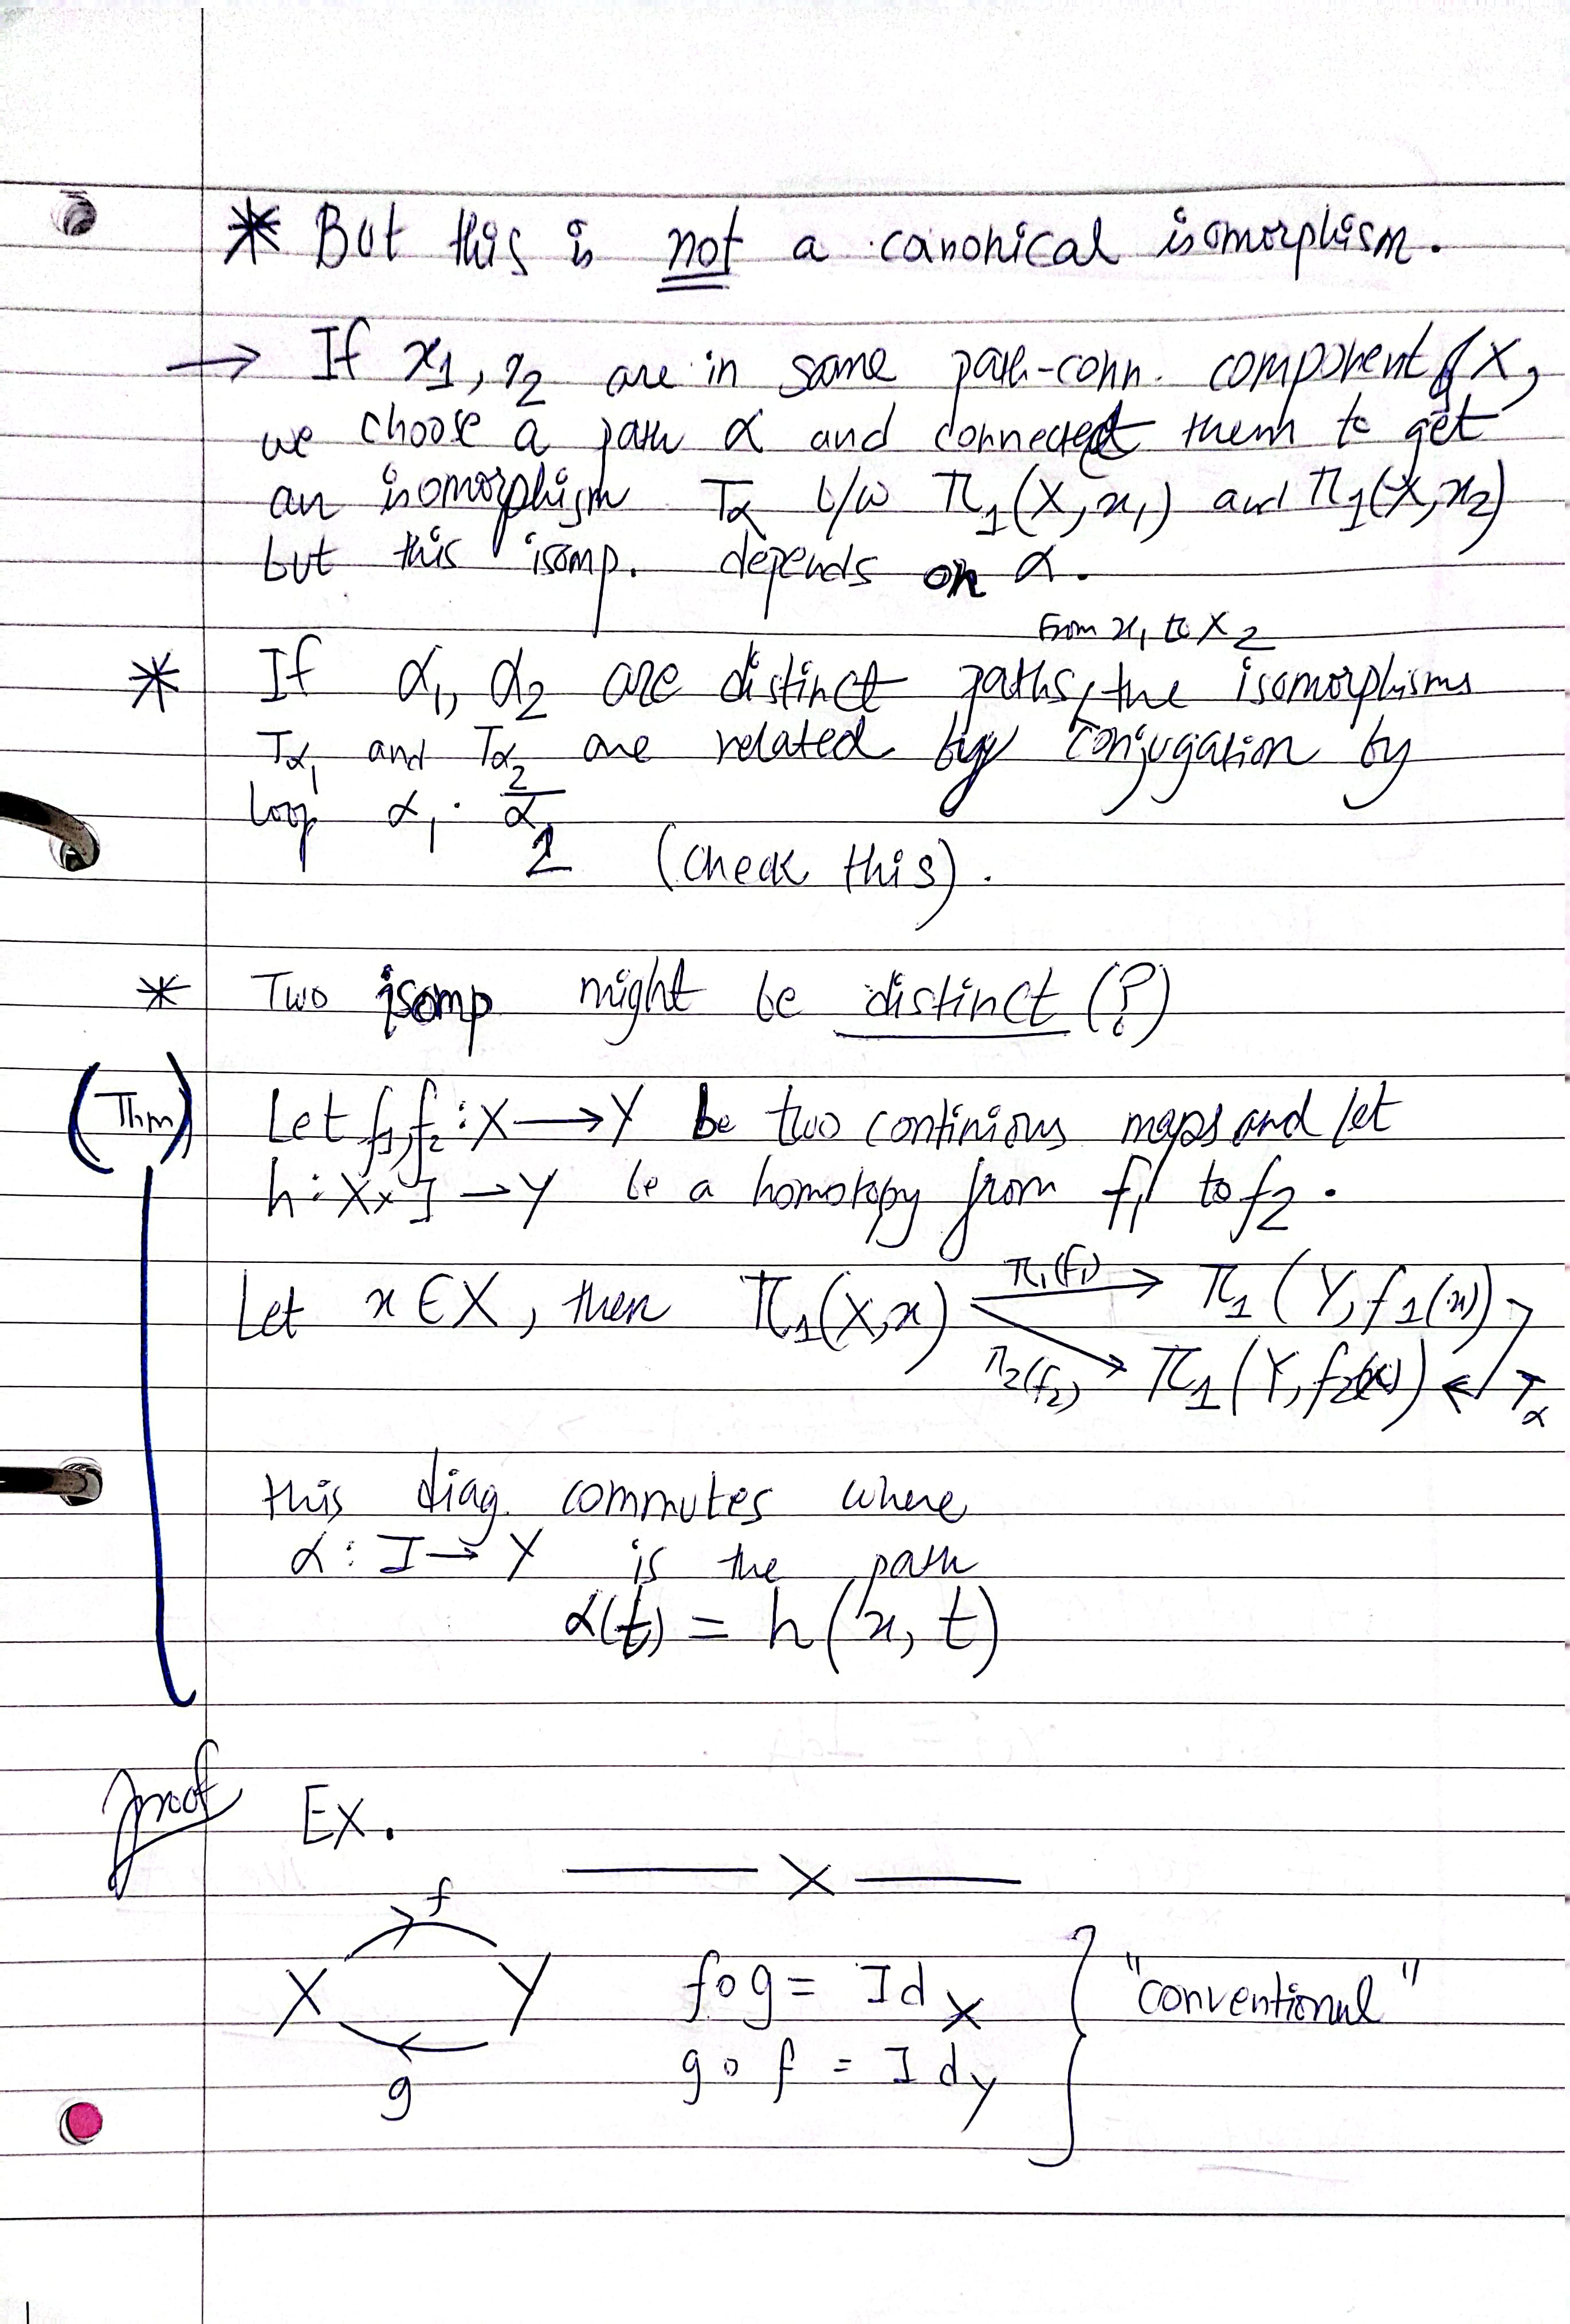 * But this is not a canonical isomorphism.
→ If x1, x2 are in same path-conn. component of X,
we choose a path α and connected them to get
an isomorphism Tα b/w π1(X, x1) and π1(X, x2)
but this isomp. depends on α.
from x1 to x2
* If α1, α2 are distinct paths, the isomorphisms
Tα1 and Tα2 are related by conjugation by
loop α1 · α̅2
(check this).
* Two isomp might be distinct (?)
(Thm) Let f1, f2 : X → Y be two continious maps and let
h : X × I → Y be a homotopy from f1 to f2.
π1(f1)
Let x ∈ X, then π1(X, x) → π1(Y, f1(x))
π2(f2) → π1(Y, f2(x)) ← Tα
this diag. commutes where
α : I → Y is the path
α(t) = h(x, t)
proof Ex.
—— X ——
f
X Y f∘g = Id X } "conventional"
g g∘f = Id y